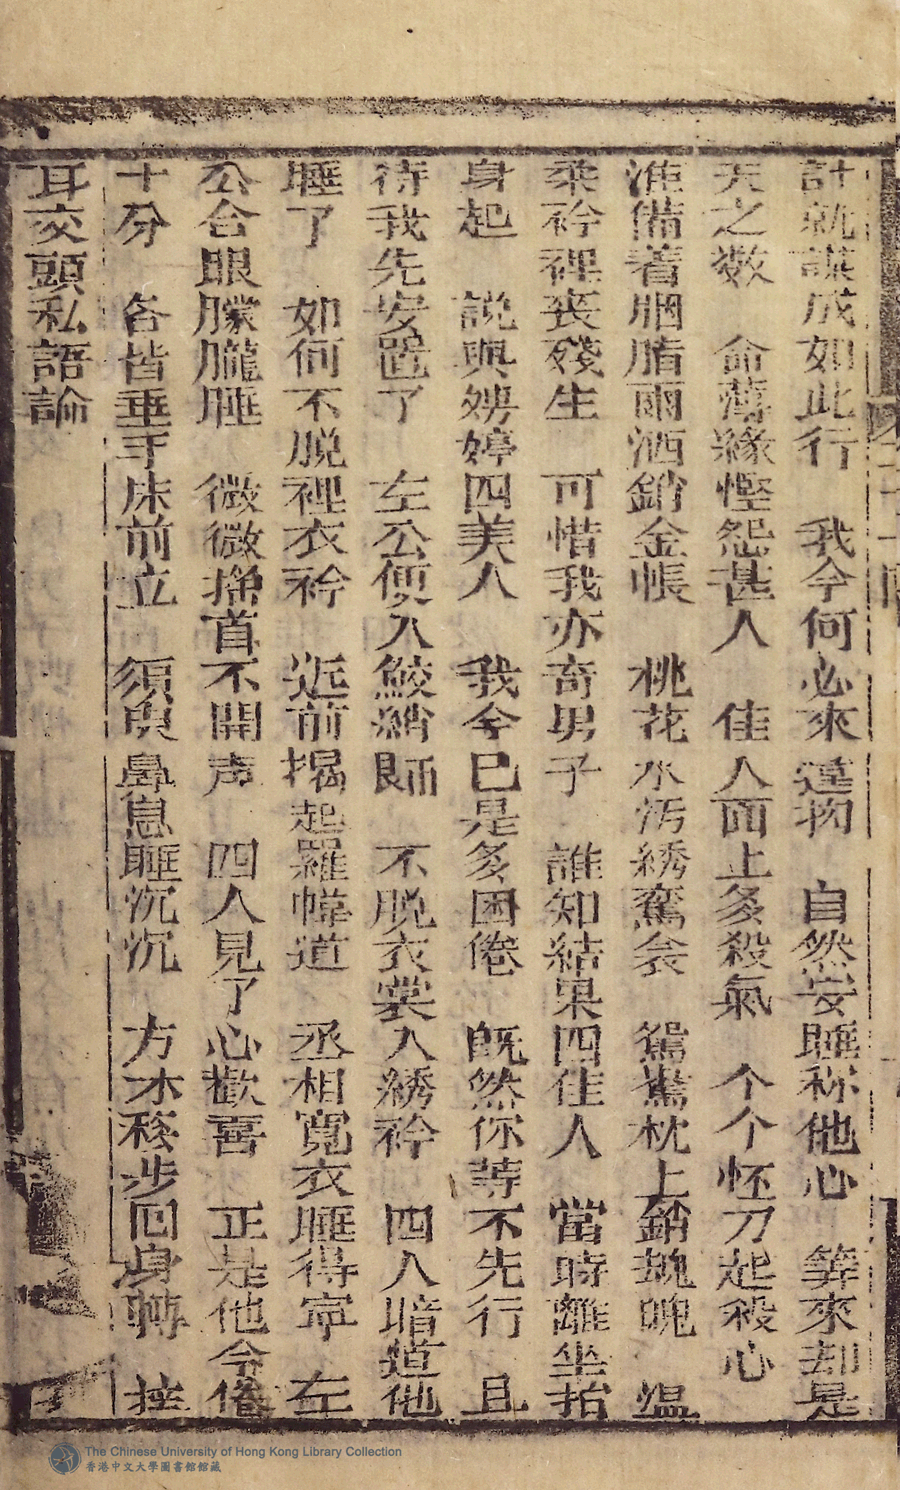 計就謀成如此行　我今何必來違拗　自然安睡称他心　筭來却是
天之数　命薄緣慳怨甚人　佳人面上多殺氣　个个怀刀起殺心
准備著胭脂雨洒銷金帳　桃花水汚綉鸾衾　鴛鴦枕上銷魂魄　温
柔衿裡丧殘生　可惜我亦奇男子　誰知結果四佳人　當時離坐抬
身起　説與娉婷四美人　我今已是多困倦　既然你等不先行　且
待我先安置了　左公便入鮫綃帥　不脱衣裳入綉衿　四人暗道他
睡了　如何不脱裡衣衿　近前揭起羅幃道　丞相寛衣睡得寧　左
公合眼朦朧睡　微微揺首不開声　四人見了心歡喜　正是他今倦
十分　各皆垂手床前立　須臾鼻息睡沉沉　方才移步回身轉　挂
耳交頭私語論
The Chinese University of Hong Kong Library Collection
香港中文大學圖書館館藏